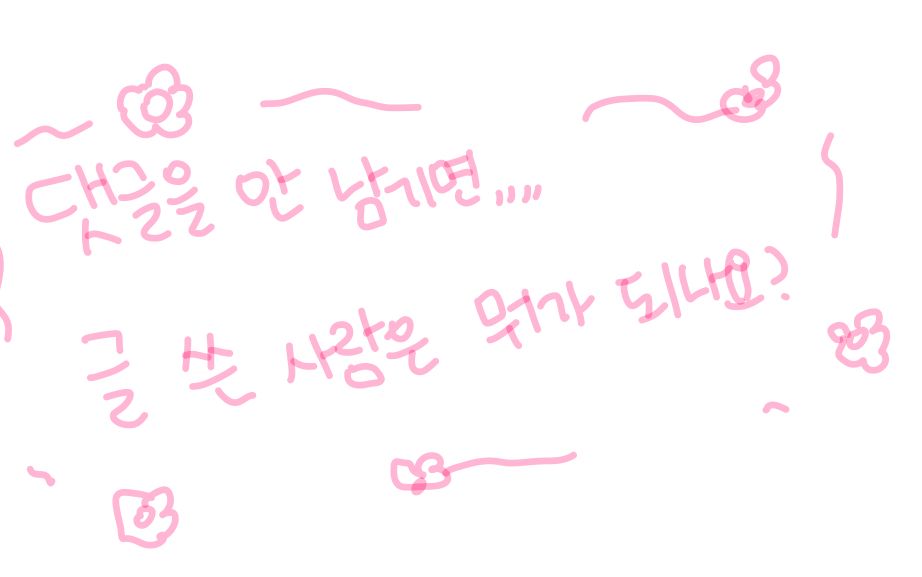 댓글을 안 남기면,,,,
글 쓴 사람은 뭐가 되나요?